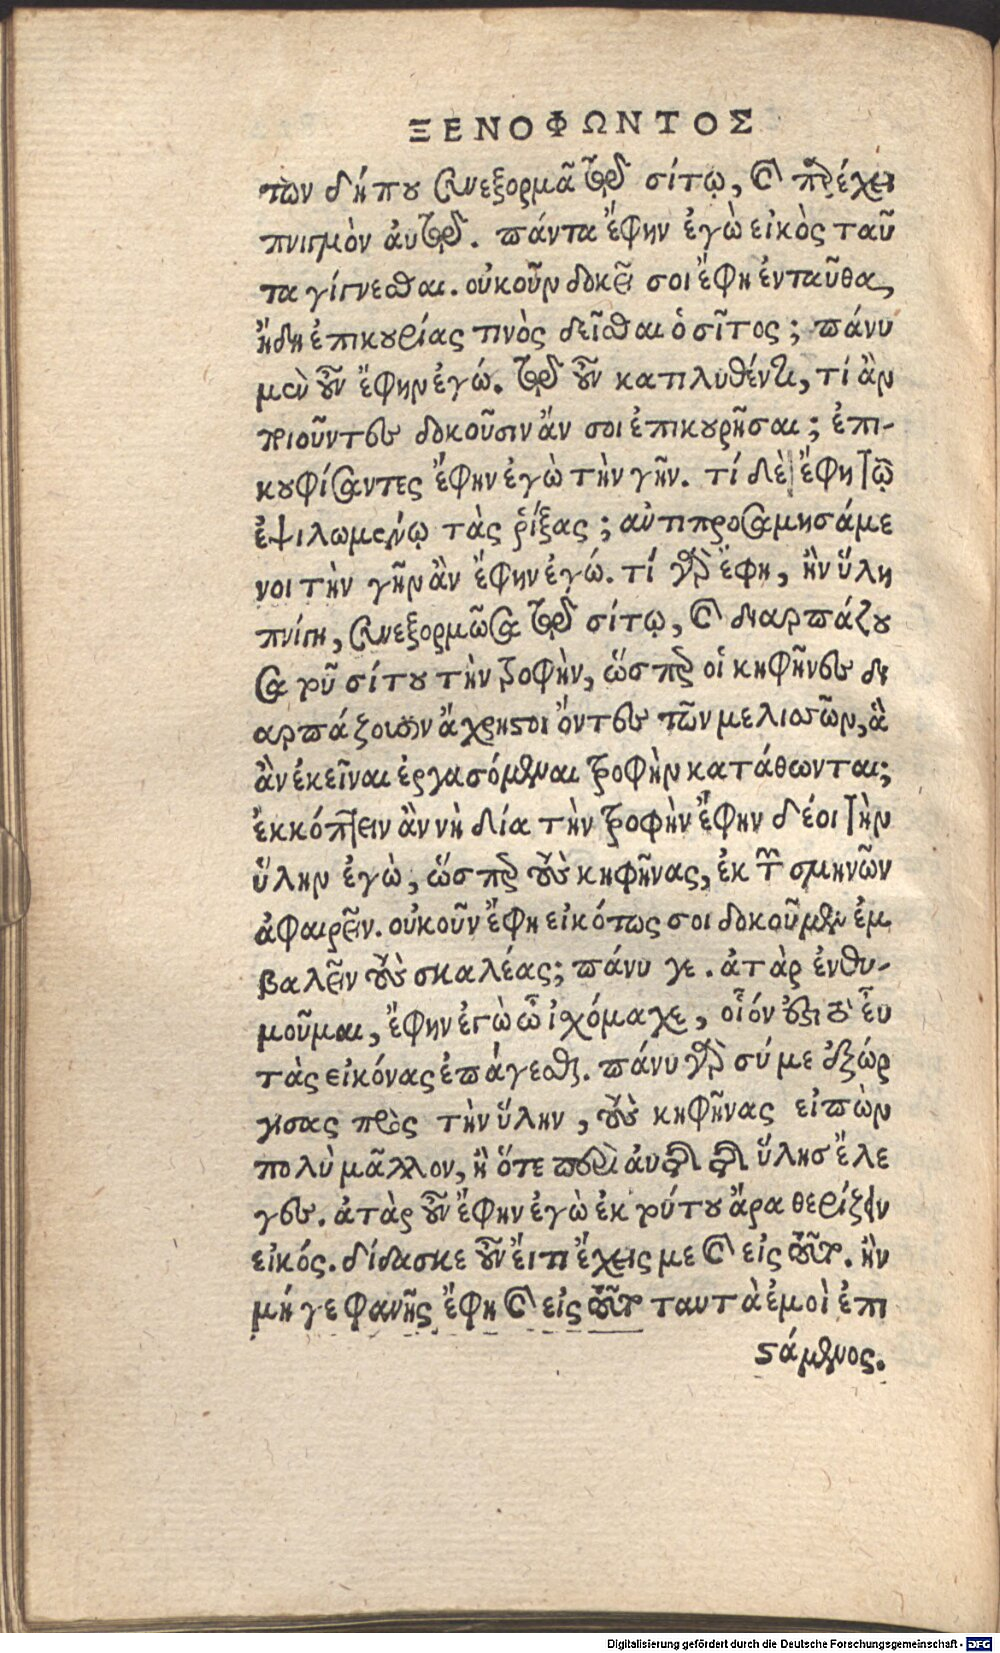 ΞΕΝΟΦΩΝΤΟΣ
τὼν δήπου συνεξορμᾷ τῷ σίτῳ, καὶ παρέχει
πνιγμὸν αὐτῷ. πάντα ἔφην ἐγὼ εἰκὸς ταῦ
τα γίγνεσθαι. οὐκοῦν δοκεῖ σοι ἔφη ἐνταῦθα
ἤδη ἐπικουρίας τινὸς δεῖσθαι ὁ σῖτος; πάνυ
μὲν οὖν ἔφην ἐγώ. τῷ οὖν κατιλυθέντι, τί ἂν
ποιοῦντες δοκοῦσιν ἄν σοι ἐπικουρῆσαι; ἐπι-
κουφίσαντες ἔφην ἐγὼ τὴν γῆν. τί δὲ ἔφη τῷ
ἐψιλωμένῳ τὰς ῥίζας; ἀντιπροσαμησάμε
νοι τὴν γῆν ἂν ἔφην ἐγώ. τί γὰρ ἔφη, ἢν ὕλη
πνίγῃ, συνεξορμῶσα τῷ σίτῳ, καὶ διαρπάζου
σα τοῦ σίτου τὴν τροφὴν, ὥσπερ οἱ κηφῆνες δι
αρπάζουσιν ἄχρηστοι ὄντες τῶν μελισσῶν, ἃ
ἂν ἐκεῖναι ἐργασόμεναι τροφὴν κατάθωνται;
ἐκκόπτειν ἂν νὴ Δία τὴν τροφὴν ἔφην δέοι τὴν
ὕλην ἐγὼ, ὥσπερ τοὺς κηφῆνας, ἐκ τῶν σμηνῶν
ἀφαιρεῖν. οὐκοῦν ἔφη εἰκότως σοι δοκοῦμεν ἐμ
βαλεῖν τοὺς σκαλέας; πάνυ γε. ἀτὰρ ἐνθυ-
μοῦμαι, ἔφην ἐγὼ ὦ ἰχόμαχε, οἷόν ἐστι τὸ εὖ
τὰς εἰκόνας ἐπάγεσθαι. πάνυ γὰρ σύ με ἐξώρ
γισας πρὸς τὴν ὕλην, τοὺς κηφῆνας εἰπὼν
πολὺ μᾶλλον, ἢ ὅτε περὶ αὐτῆς τῆς ὕλης ἔλε
γες. ἀτὰρ οὖν ἔφην ἐγὼ ἐκ τούτου ἄρα θερίζειν
εἰκός. δίδασκε οὖν εἴ τι ἔχεις με καὶ εἰς τοῦτο. ἢν
μή γε φανῇς ἔφη καὶ εἰς τοῦτο ταυτὰ ἐμοὶ ἐπι
στάμενος.
Digitalisierung gefördert durch die Deutsche Forschungsgemeinschaft - DFG